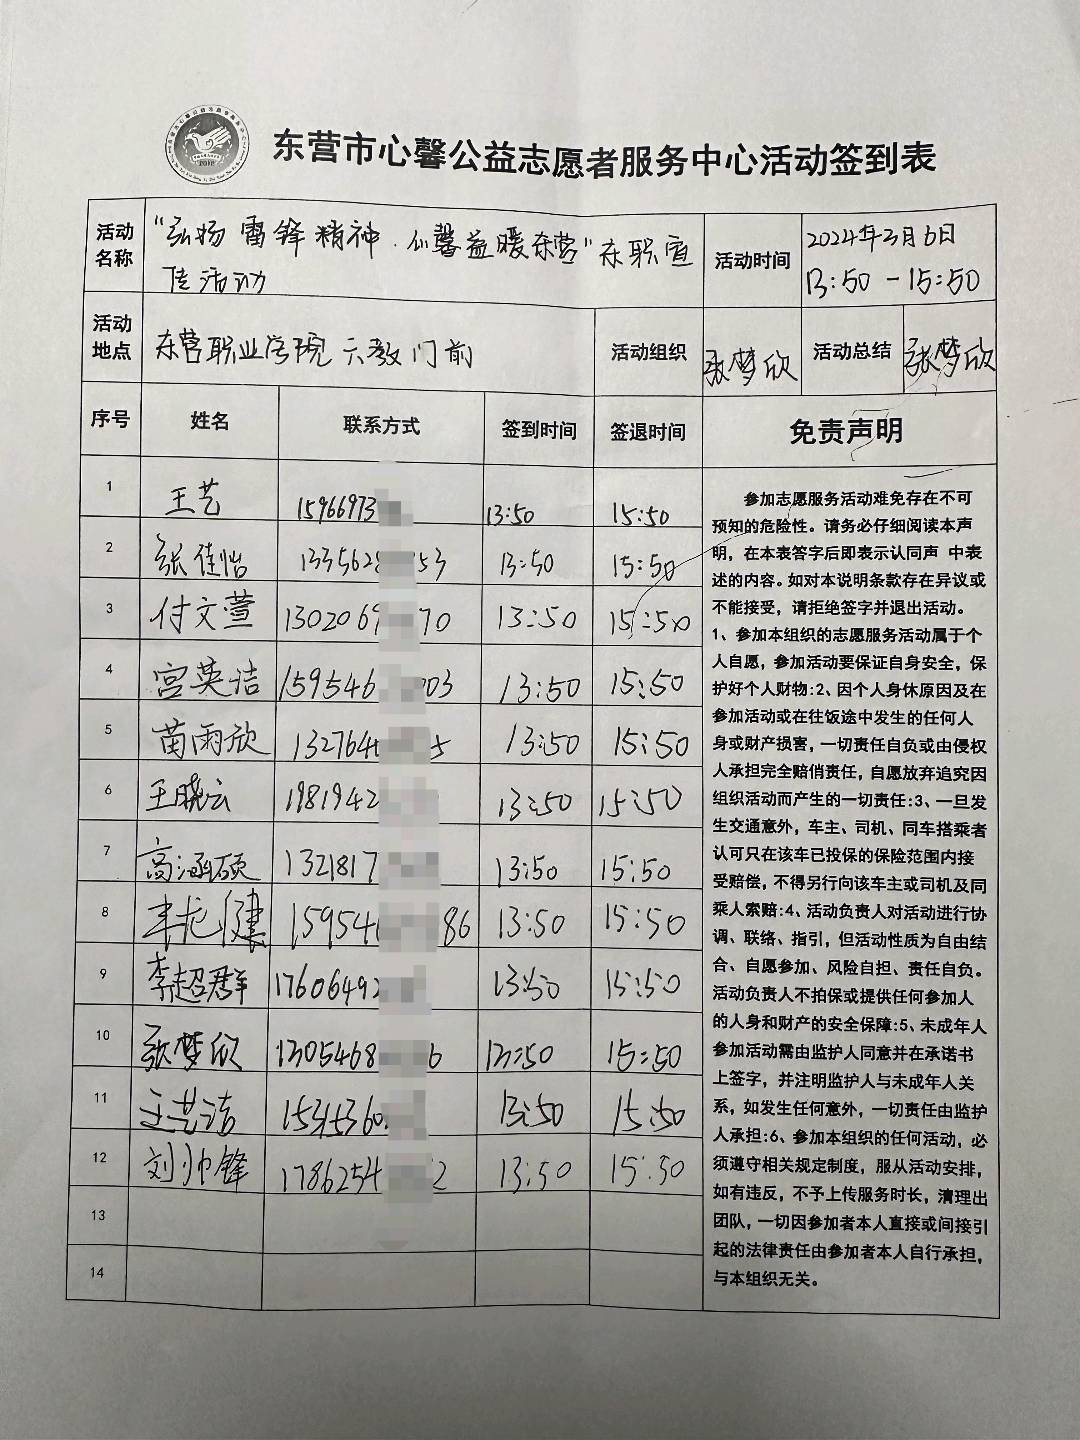 东营市心馨公益志愿者服务中心活动签到表
活动名称 "弘扬雷锋精神·心馨益暖东营"东职宣传活动 活动时间 2024年3月6日 13:50-15:50
活动地点 东营职业学院六教门前 活动组织 张梦欣 活动总结 张梦欣
序号 姓名 联系方式 签到时间 签退时间 免责声明
1 王艺 15966973 13:50 15:50
2 张佳怡 1335628 53 13:50 15:50
3 付文萱 1302069 70 13:50 15:50
4 宫英洁 159546 003 13:50 15:50
5 苗雨欣 1327646 5 13:50 15:50
6 王晓云 1981942 13:50 15:50
7 高涵硕 1321817 13:50 15:50
8 丰龙健 159546 86 13:50 15:50
9 李超群 17606492 13:50 15:50
10 张梦欣 1305468 6 13:50 15:50
11 王艺洁 1534536 13:50 15:50
12 刘帅锋 1786254 2 13:50 15:50
13
14
参加志愿服务活动难免存在不可
预知的危险性。请务必仔细阅读本声
明，在本表答字后即表示认同声 中表
述的内容。如对本说明条款存在异议或
不能接受，请拒绝签字并退出活动。
1、参加本组织的志愿服务活动属于个
人自愿，参加活动要保证自身安全，保
护好个人财物:2、因个人身休原因及在
参加活动或在往饭途中发生的任何人
身或财产损害，一切责任自负或由侵权
人承担完全赔俏责任，自愿放弃追究因
组织活动而产生的一切责任:3、一旦发
生交通意外，车主、司机、同车搭乘者
认可只在该车已投保的保险范围内接
受赔偿，不得另行向该车主或司机及同
乘人索赔:4、活动负责人对活动进行协
调、联络、指引，但活动性质为自由结
合、自愿参加、风险自担、责任自负。
活动负责人不拍保或提供任何参加人
的人身和财产的安全保障:5、未成年人
参加活动需由监护人同意并在承诺书
上签字，并注明监护人与未成年人关
系，如发生任何意外，一切责任由监护
人承担:6、参加本组织的任何活动，必
须遵守相关规定制度，服从活动安排，
如有违反，不予上传服务时长，清理出
团队，一切因参加者本人直接或间接引
起的法律责任由参加者本人自行承担，
与本组织无关。